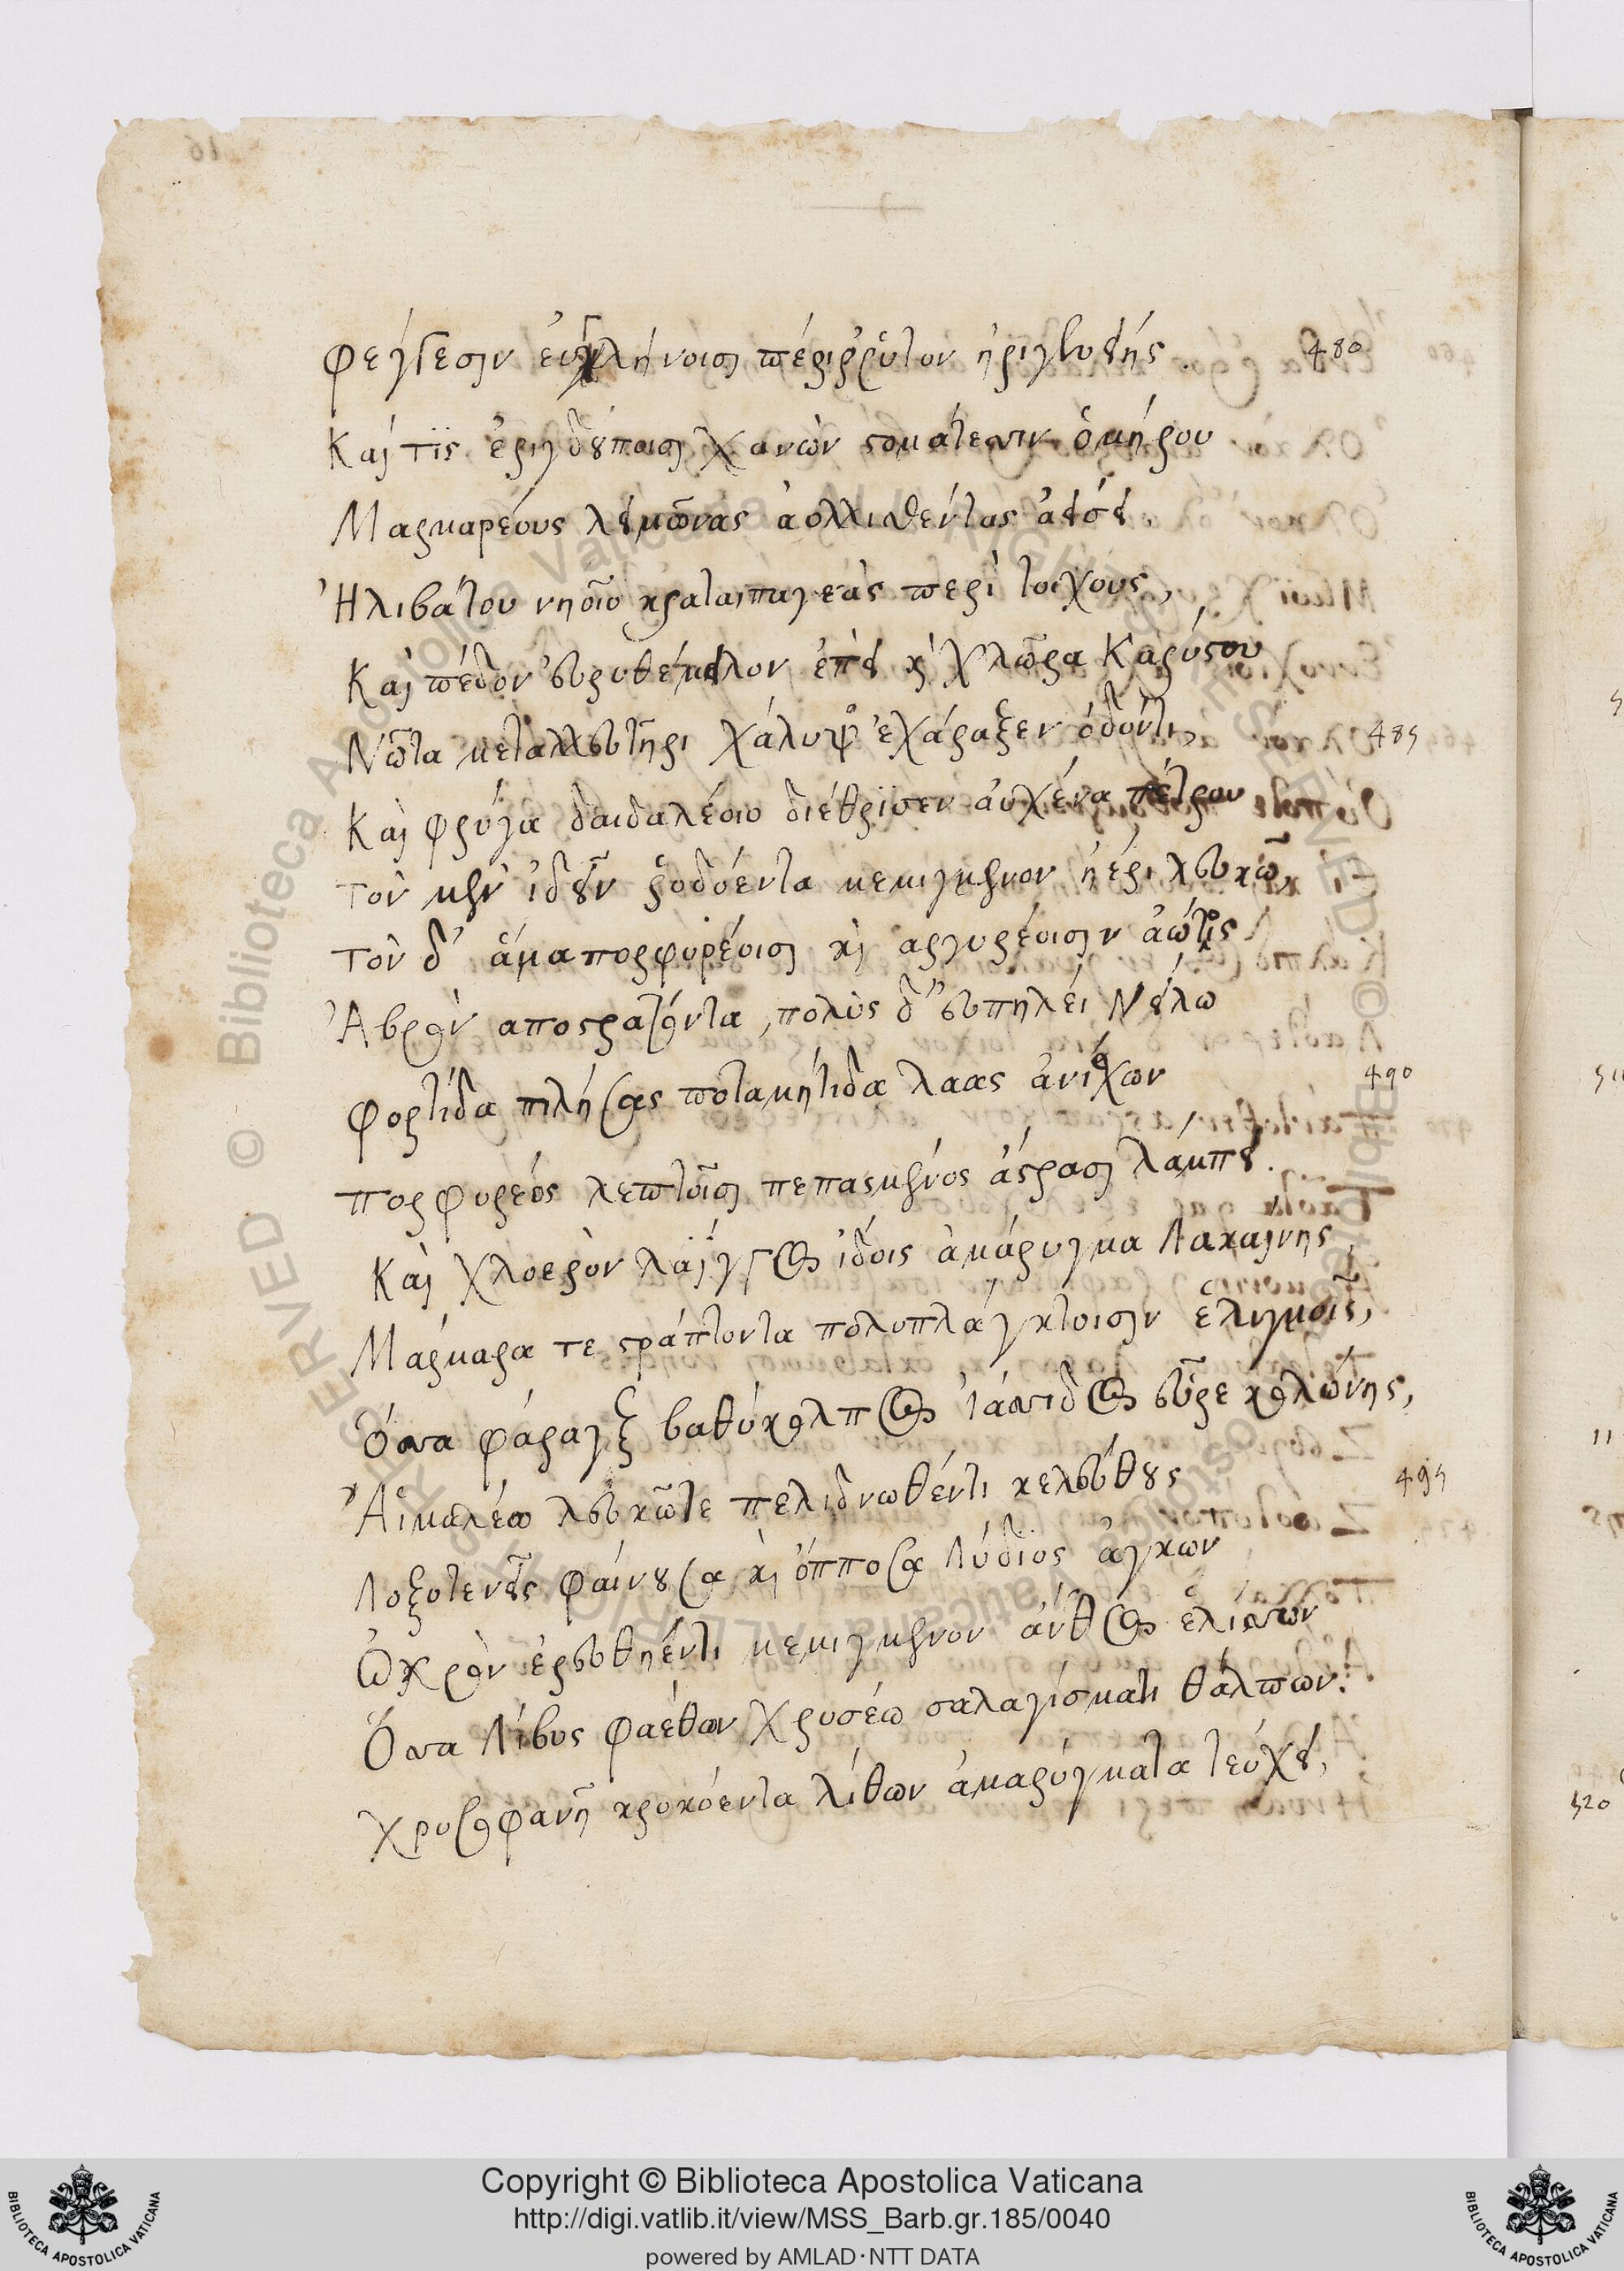 φέγγεσιν εὐγλήνοισι περίρρυτον ἠριγενείης. 480
Καὶ τίς ἐριγδούποισι χανὼν στομάτεσσιν ὁμήρου
Μαρμαρέους λειμῶνας ἀολλισθέντας ἀείσει
Ἠλιβάτου νηοῖο κραταιπαγέας περὶ τοίχους,
Καὶ πέδον εὐρυθέμειλον ἐπεὶ κὶ χλωρὰ Καρύστου
Νῶτα μεταλλευτῆρι χάλυψ ἐχάραξεν ὀδόντι, 485
Καὶ φρύγα δαιδαλέοιο διέθρισεν αὐχένα πέτρου
τὸν μὲν ἰδεῖν ῥοδόεντα μεμιγμένον ἠέρι λευκῷ,
τὸν δ' ἅμα πορφυρέοισι κὶ αργυρέοισιν ἀώτοις
Ἁβρὸν αποστράπτοντα, πολὺς δ' εὐπηλέϊ Νείλῳ
φορτίδα πιλήσας ποταμήτιδα λαας ἀνίσχων 490
πορφυρεος λεπτοῖσι πεπασμένος ἄστρασι λάμπει.
Καὶ χλοερὸν λάϊγγος ἴδοις ἀμάρυγμα Λακαίνης,
Μάρμαρα τε στράπτοντα πολυπλάγκτοισιν ἑλιγμοῖς,
Ὅσσα φάραγξ βαθύκολπος Ἰάσσιδος εὗρε κολώνης,
Αἱμαλέῳ λευκῶτε πελιδνωθέντι κελεύθους 495
Λοξοτενεῖς φαίνουσα κὶ ὅπποσα Λύδιος ἀγκων
Ὠχρὸν ἐρευθήεντι μεμιγμένον ἄνθος ἑλίσσων
Ὅσσα Λίβυς φαέθων χρυσέῳ σαλαγίσματι θάλπων.
χρυσοφανῆ κροκόεντα λίθων ἀμαρύγματα τεύχει,
Copyright © Biblioteca Apostolica Vaticana
http://digi.vatlib.it/view/MSS_Barb.gr.185/0040
powered by AMLAD·NTT DATA